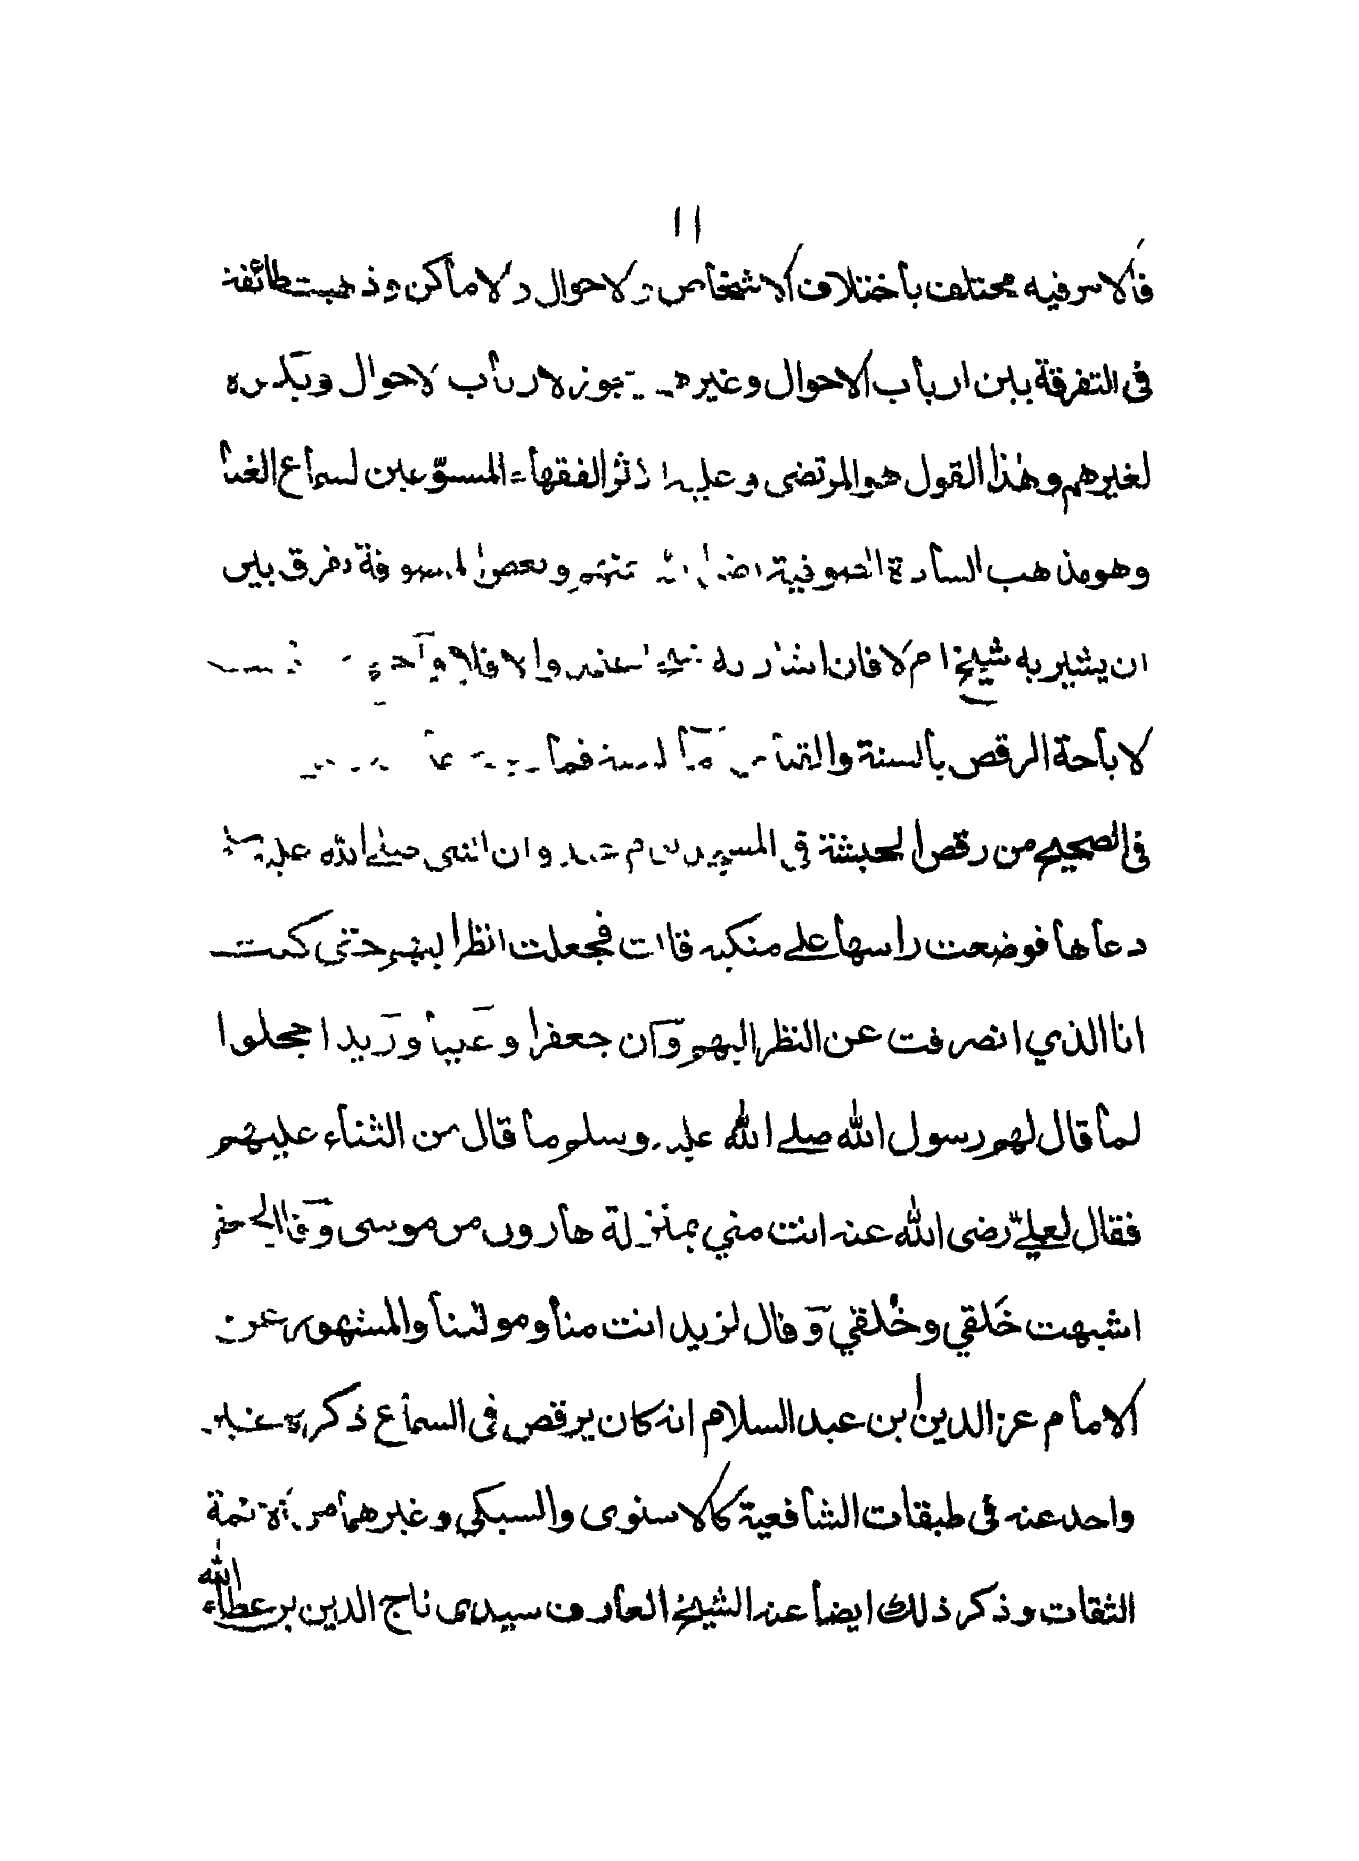 ١١
فالامر فيه مختلف باختلاف الاشخاص والاحوال والاماكن وذهبت طائفة
في التفرقة بين ارباب الاحوال وغيرهم فيجوز لارباب الاحوال ويكره
لغيرهم وهذا القول هو المرتضى وعليه اكثر الفقهاء المسوّغين لسماع الغنا
وهو مذهب السادة الصوفية وبعض الصوفة يفرق بين
ان يشير به شيخ ام لا فان اشار به والا فلا
لاباحة الرقص بالسنة والقياس اما السنة فما
في الصحيح من رقص الحبشة في المسجد يوم عيد وان النبي صلى الله عليه
دعاها فوضعت راسها على منكبه قالت فجعلت انظر اليهم حتى كنت
انا الذي انصرفت عن النظر اليهم وان جعفرا وعليا وزيدا حجلوا
لما قال لهم رسول الله صلى الله عليه وسلم ما قال من الثناء عليهم
فقال لعليّ رضى الله عنه انت مني بمنزلة هارون من موسى وقال لجعفر
اشبهت خَلقي وخُلقي وقال لزيد انت منا ومولانا والمشهور عن
الامام عز الدين ابن عبد السلام انه كان يرقص في السماع ذكره غير
واحد عنه في طبقات الشافعية كالاسنوى والسبكي وغيرهما من ائمة
الثقات وذكر ذلك ايضا عنه الشيخ العارف سيدى تاج الدين بن عطاء الله